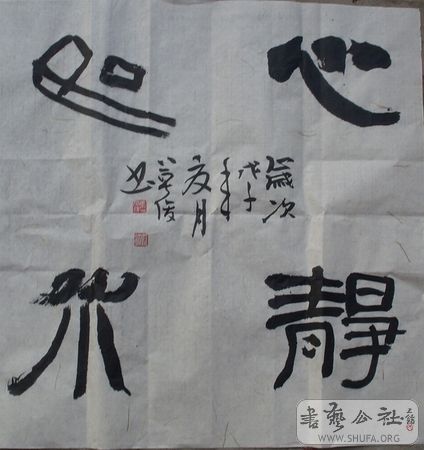 心靜
如水
歲次
戊子
年
夏月
书
書藝公社
WWW.SHUFA.ORG